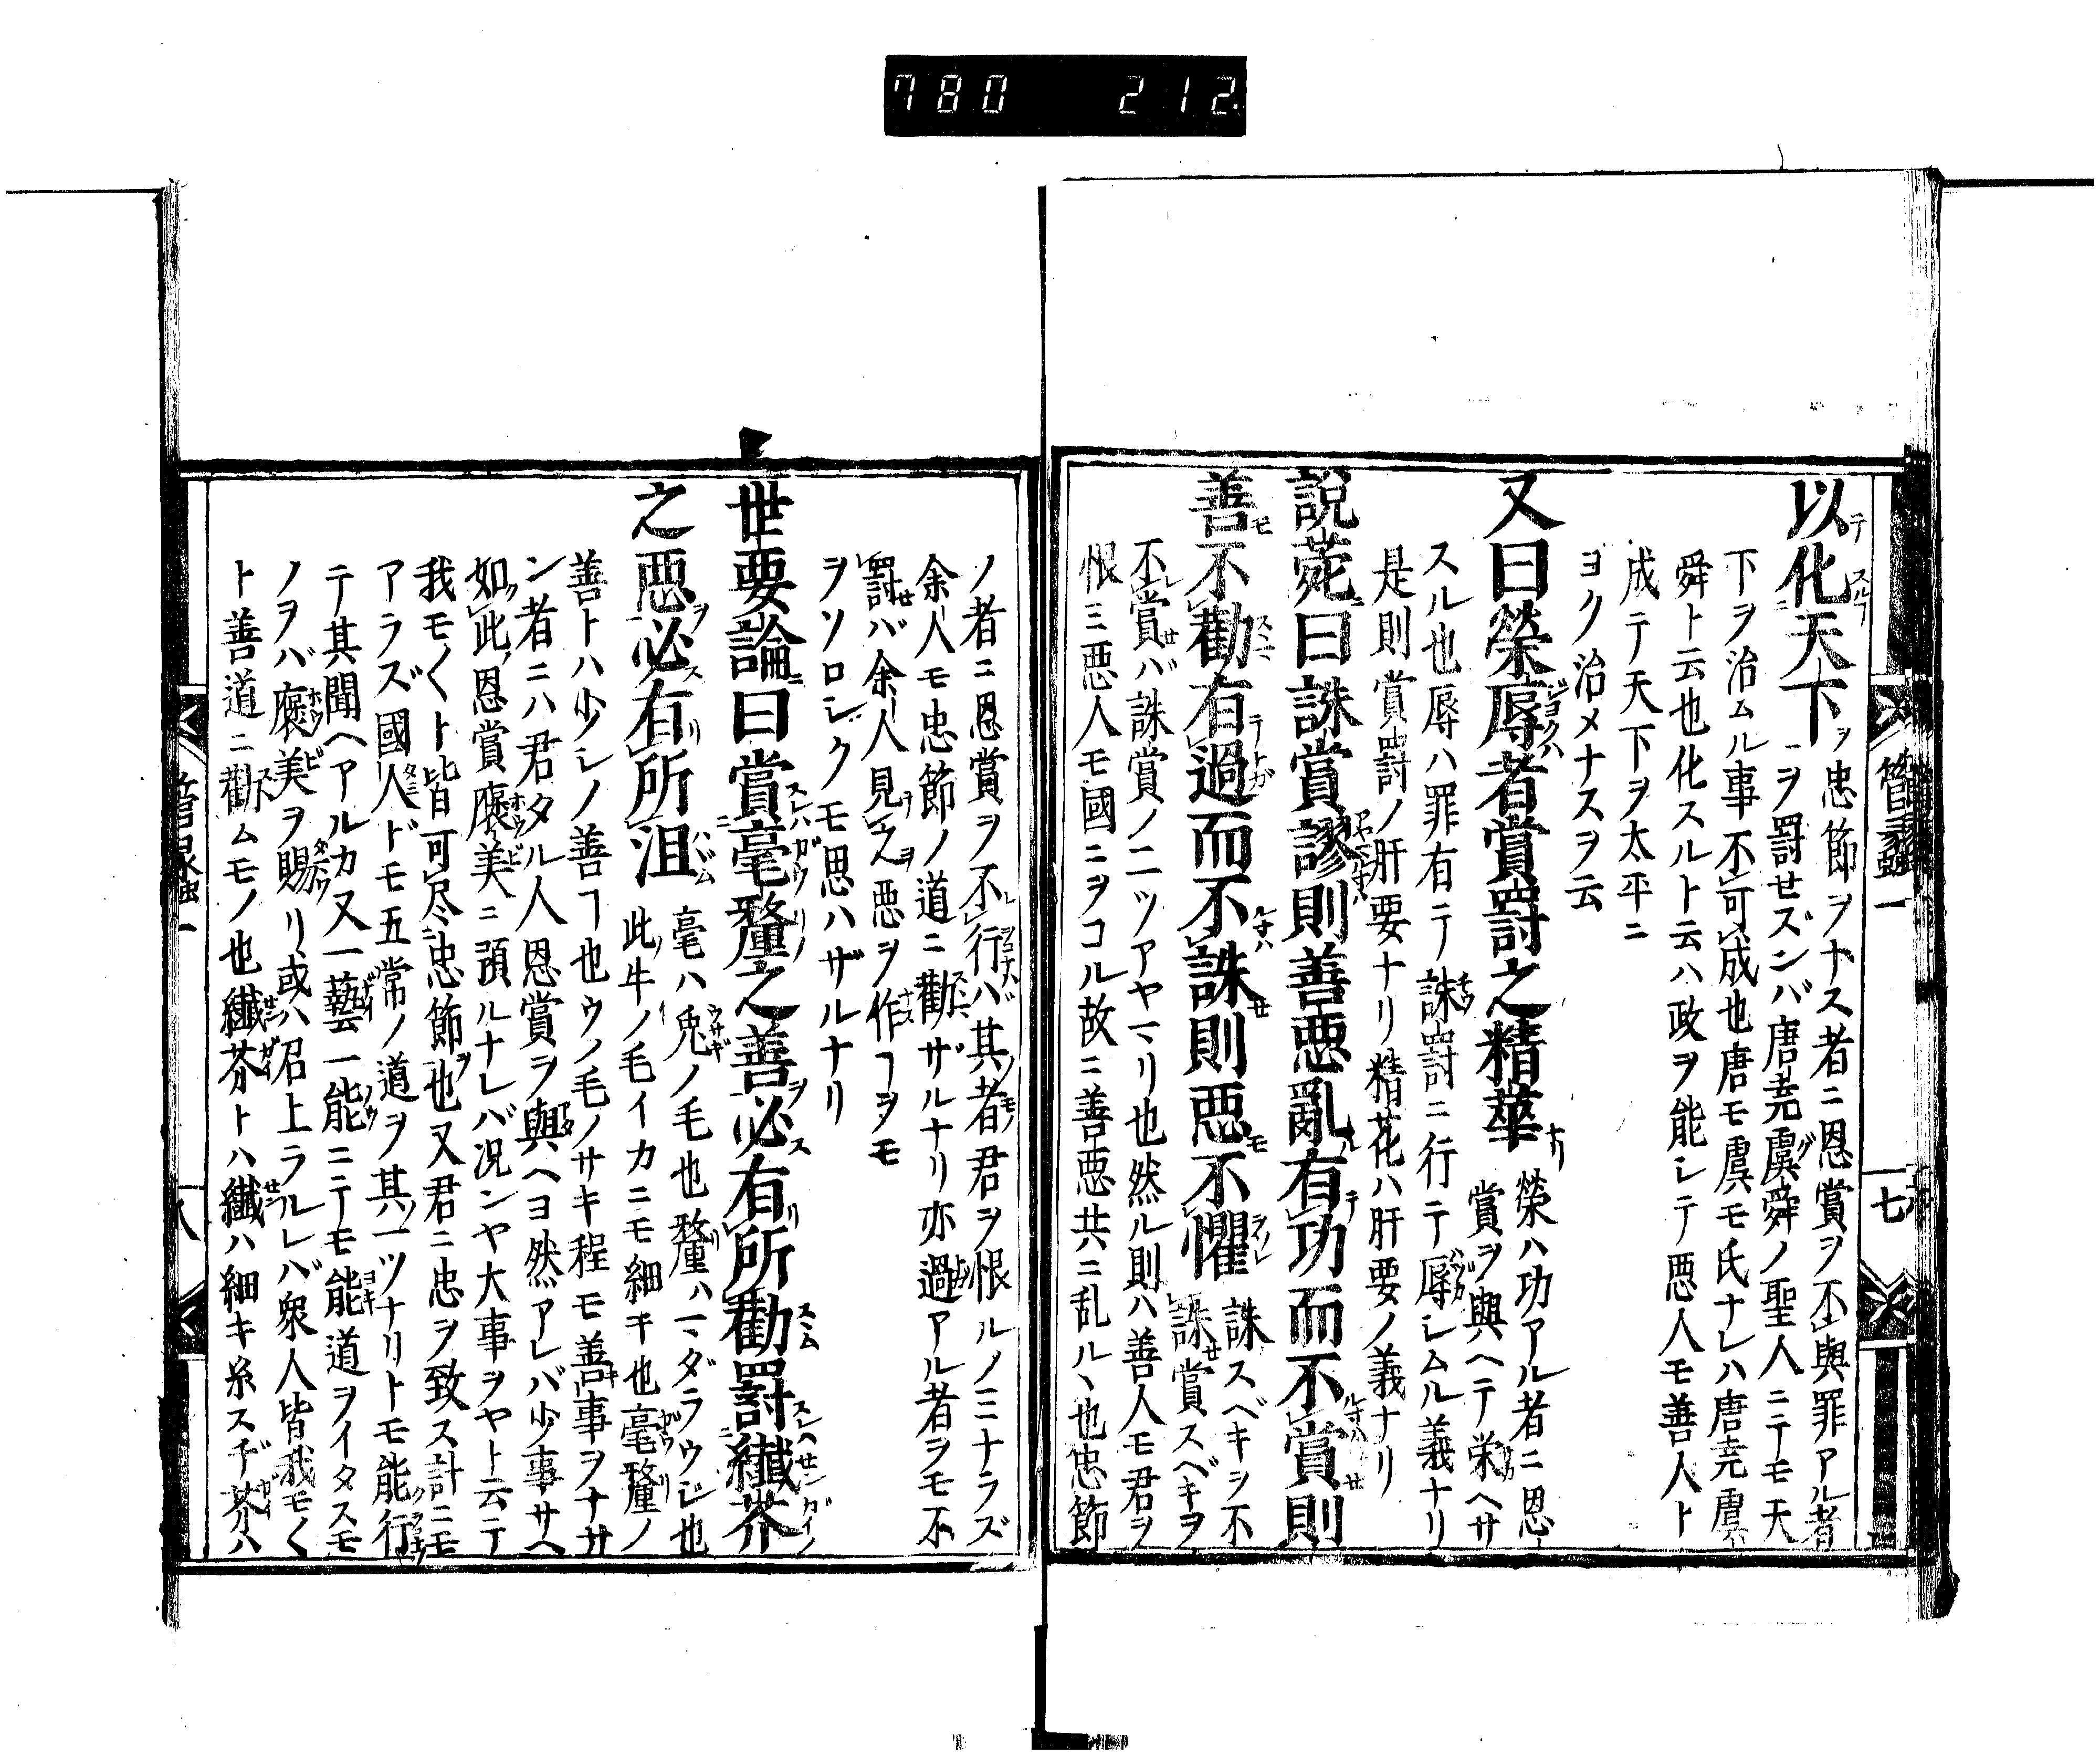 780 212
管蠡一
七
以化天下 忠節ヲナス者ニ恩賞ヲ不與罪アル者
ヲ罰せズンバ唐堯虞舜ノ聖人ニテモ天
下ヲ治ムル事不可成也唐モ虞モ氏ナレハ唐堯虞
舜ト云也化スルト云ハ政ヲ能シテ悪人モ善人ト
成テ天下ヲ太平ニ
ヨク治メナスヲ云
又曰榮辱者賞罰之精華 榮ハ功アル者ニ恩
賞ヲ與ヘテ栄ヘサ
スル也辱ハ罪有テ誅罸ニ行テ辱シムル義ナリ
是則賞罸ノ肝要ナリ精花ハ肝要ノ義ナリ
説苑曰誅賞謬則善悪亂有功而不賞則
善不勸有過而不誅則悪不懼 誅スベキヲ不
誅賞スベキヲ
不賞バ誅賞ノ二ツアヤマリ也然ル則ハ善人モ君ヲ
恨ミ悪人モ國ニヲコル故ニ善悪共ニ乱ルヽ也忠節
ノ者ニ恩賞ヲ不行バ其者君ヲ恨ルノミナラズ
余人モ忠節ノ道ニ勸ザルナリ亦過アル者ヲモ不
罸バ余人見之悪ヲ作ヿヲモ
ヲソロシクモ思ハザルナリ
世要論曰賞毫釐之善必有所勸罸纎芥
之悪必有所沮 毫ハ兎ノ毛也釐ハマダラウシ也
此牛ノ毛イカニモ細キ也毫釐ノ
善トハ少シノ善ヿ也ウノ毛ノサキ程モ善事ヲナサ
ン者ニハ君タル人恩賞ヲ與ヘヨ然アレバ少事サヘ
如此恩賞褒美ニ預ルナレバ况ンヤ大事ヲヤト云テ
我モ〱ト皆可尽忠節也又君ニ忠ヲ致ス計ニモ
アラズ國人ドモ五常ノ道ヲ其一ツナリトモ能行
テ其聞ヘアルカ又一藝一能ニテモ能道ヲイタスモ
ノヲバ褒美ヲ賜リ或ハ召上ラルレバ衆人皆我モ〱
ト善道ニ勸ムモノ也纎芥トハ纎ハ細キ糸スヂ芥ハ
管蠡一
八